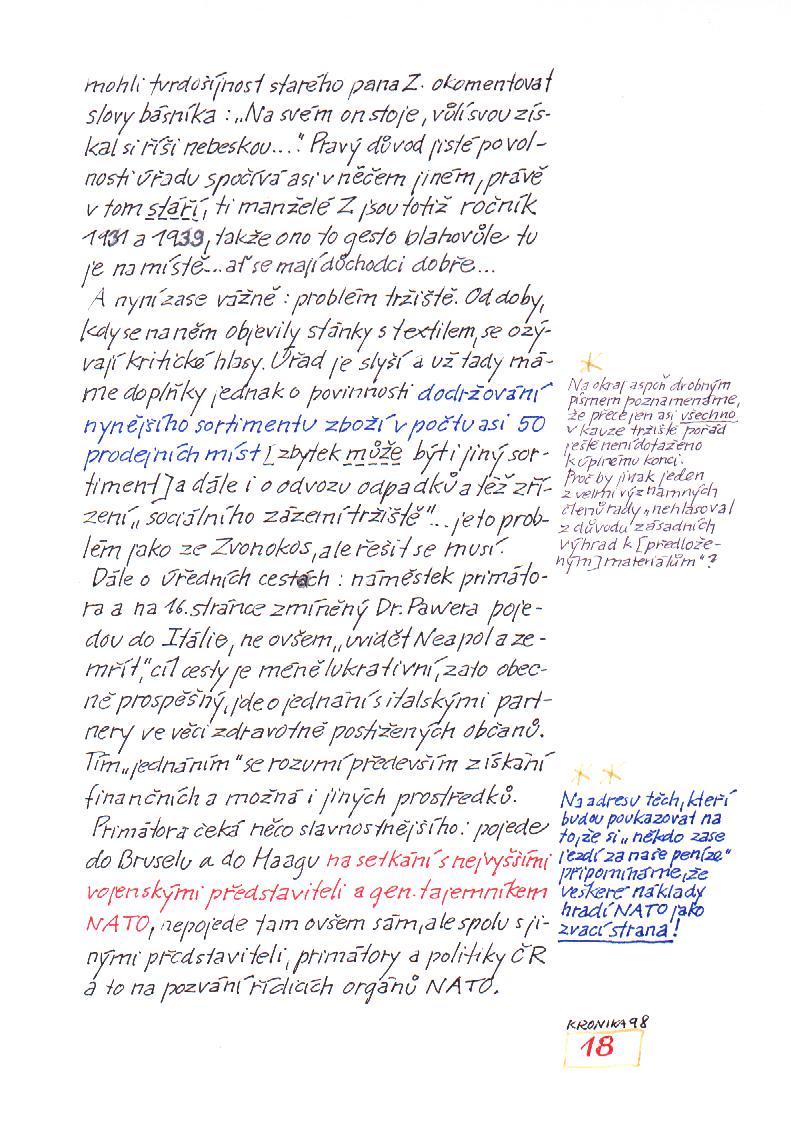 mohli tvrdošíjnost starého pana Z. okomentovat
slovy básníka : „Na svém on stoje, vůlí svou zís-
kal si říši nebeskou...". Pravý důvod jisté povol-
nosti úřadu spočívá asi v něčem jiném, právě
v tom stáří, ti manželé Z jsou totiž ročník
1931 a 1939, takže ono to gesto blahovůle tu
je na místě... ať se mají důchodci dobře...
A nyní zase vážně : problém tržiště. Od doby,
kdy se na něm objevily stánky s textilem, se ozý-
vají kritické hlasy. Úřad je slyší a už tady má-
me doplňky jednak o povinnosti dodržování
nynějšího sortimentu zboží v počtu asi 50
prodejních míst [zbytek může být i jiný sor-
timent] a dále i o odvozu odpadků a též zří-
zení „sociálního zázemí tržiště"... je to prob-
lém jako ze Zvonokos, ale řešit se musí.
Dále o úředních cestách : náměstek primáto-
ra a na 16. stránce zmíněný Dr. Pawera poje-
dou do Itálie, ne ovšem „uvidět Neapol a ze-
mřít," cíl cesty je méně lukrativní, zato obec-
ně prospěšný, jde o jednání s italskými part-
nery ve věci zdravotně postižených občanů.
Tím „jednáním" se rozumí především získání
finančních a možná i jiných prostředků.
Primátora čeká něco slavnostnějšího : pojede
do Bruselu a do Haagu na setkání s nejvyššími
vojenskými představiteli a gen. tajemníkem
NATO, nepojede tam ovšem sám, ale spolu s ji-
nými představiteli, primátory a politiky ČR
a to na pozvání řídících orgánů NATO.
Na okraj aspoň drobným
písmem poznamenáme,
že přece jen asi všechno
v kauze tržiště pořád
ještě není dotaženo
k úplnému konci.
Proč by jinak jeden
z velmi významných
členů rady „nehlasoval
z důvodu zásadních
výhrad k [předlože-
ným] materiálům"?
Na adresu těch, kteří
budou poukazovat na
to, že si „někdo zase
jezdí za naše peníze"
připomínáme, že
veškeré náklady
hradí NATO jako
zvací strana!
KRONIKA 98
18